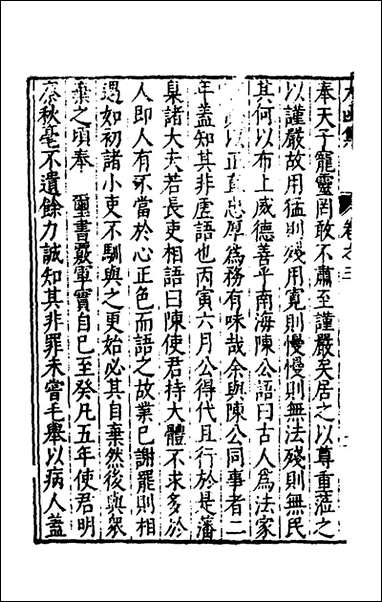 奉天子寵靈罔敢不肅至謹嚴矣居之以尊重蒞之
以謹嚴故用猛則殘用寬則慢慢則無法殘則無民
其何以布上威德善乎南海陳公語曰古人為法家
以正直忠厚為務有味哉余與陳公同事者二
年蓋知其非虗語也丙寅六月公得代且行於是藩
臬諸大夫若長吏相語曰陳使君持大體不求多於
人即人有不當於心正色而語之故業已謝罷則相
遇如初諸小吏不馴與之更始必其自棄然後與衆
棄之頃奉 璽書覈軍實自己至癸凡五年使君明
察秋毫不遺餘力誠知其非罪未嘗毛舉以病人蓋
卷之三